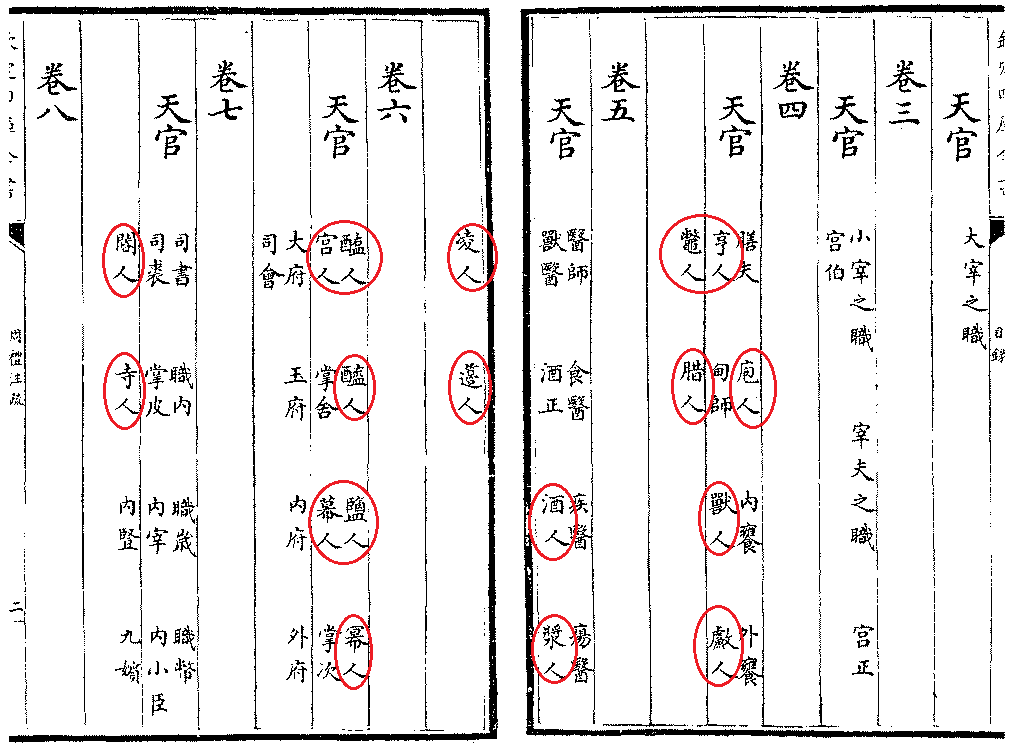 天官 大宰之職
卷三
天官 小宰之職 宰夫之職 宮正
宮伯
卷四
天官 膳夫 庖人 內饔 外饔
亨人 甸師 獸人 䱷人
鼈人 腊人
卷五
天官 醫師 食醫 疾醫 瘍醫
獸醫 酒正 酒人 漿人
凌人 籩人
卷六
天官 醢人 醯人 鹽人 冪人
宮人 掌舍 幕人 掌次
大府 玉府 內府 外府
司會
卷七
天官 司書 職內 職歲 職幣
司裘 掌皮 內宰 內小臣
閽人 寺人 內豎 九嬪
卷八
周禮注疏
二